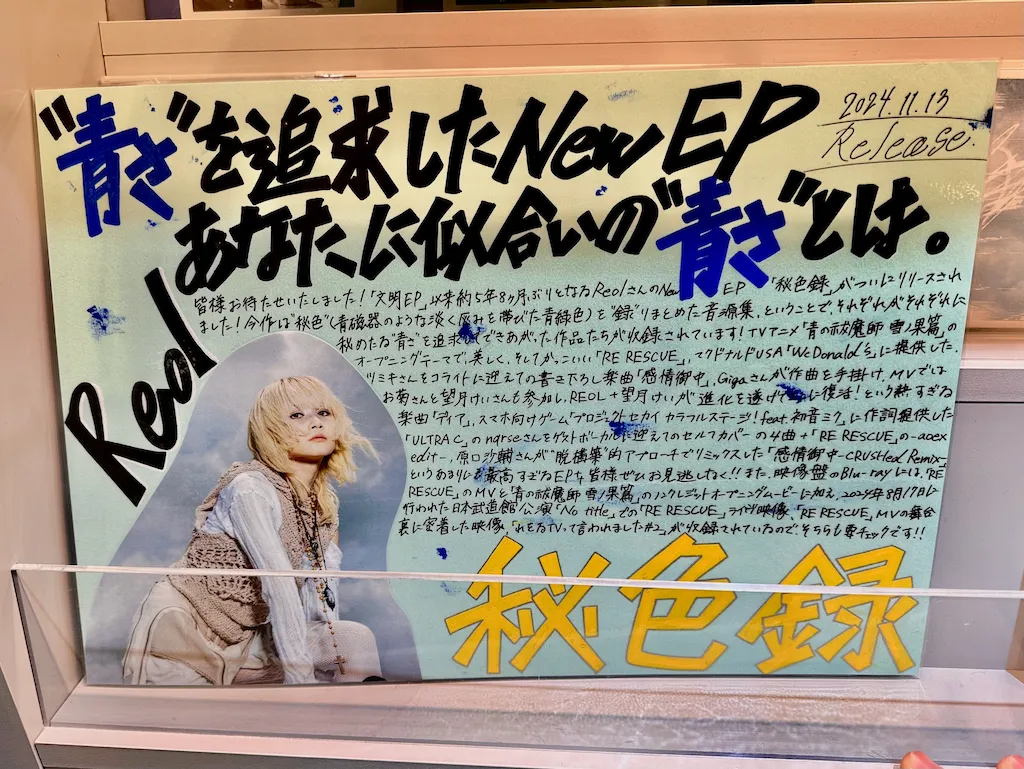 "青さ"を追求したNew EP
2024.11.13
Release.
あなたに似合いの"青さ"とは。
Reol
皆様お待たせいたしました!「文明EP」以来約5年8ヶ月ぶりとなるReolさんのNew EP 「秘色録」がついにリリースされ
ました!今作は"秘色"(青磁器のような淡く灰みを帯びた青緑色)を"録"りまとめた音源集、ということで、それぞれがそれぞれに
秘めたる"青さ"を追求してできあがった作品たちが収録されています!TVアニメ「青の祓魔師 雪ノ果篇」の
オープニングテーマで、美しく、そしてかっこいい「RE RESCUE」、マクドナルドUSA「WcDonald's」に提供した、
ツミキさんをコライトに迎えての書き下ろし楽曲「感情御中」、Gigaさんが作曲を手掛け、MVでは
お菊さんと望月けいさんも参加し、REOL+望月けいが進化を遂げて復活!という熱すぎる
楽曲「ディア」、スマホ向けゲーム「プロジェクトセカイ カラフルステージ! feat. 初音ミク」に作詞提供した
「ULTRA C」のnqrseさんをゲストボーカルに迎えてのセルフカバーの4曲+「RE RESCUE」の-aoex
edit-、原口沙輔さんが"脱構築"的アプローチでリミックスした「感情御中-CRUSHed Remix-」
というあまりにも最高すぎるEP、皆様ぜひお見逃しなく!!また、映像盤のBlu-rayには、「RE
RESCUE」のMVと「青の祓魔師 雪ノ果篇」のノンクレジットオープニングムービーに加え、2024年8月17日に
行われた日本武道館公演「No title」での「RE RESCUE」ライブ映像、「RE RESCUE」MVの舞台
裏に密着した映像「れをるTVって言われました#2」が収録されているので、そちらも要チェックです!!
秘色録